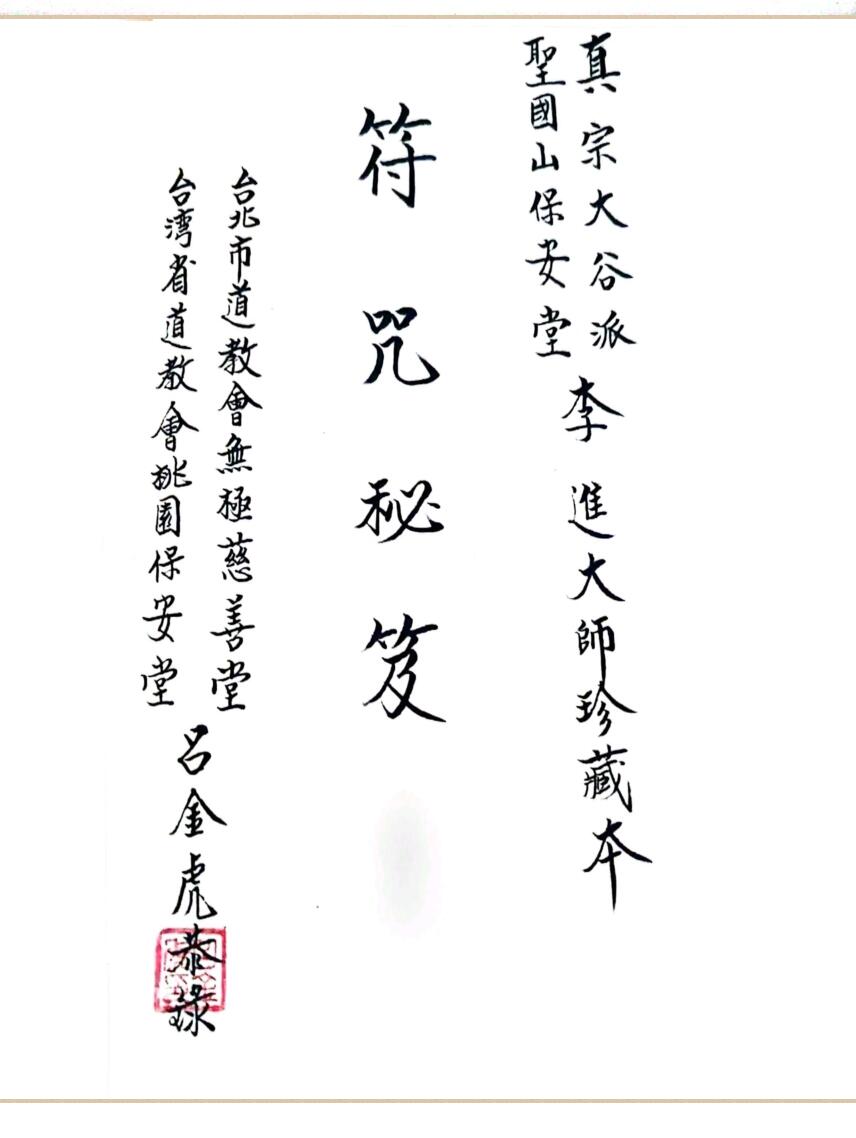 真宗大谷派
聖國山保安堂
李進大師珍藏本
符咒秘笈
台北市道教會無極慈善堂
台湾省道教會桃園保安堂
呂金虎恭錄